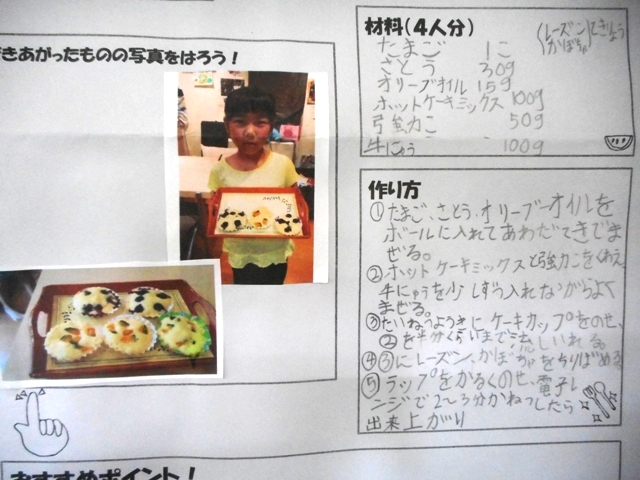 きあがったものの写真をはろう！
材料（４人分）
(レーズン かぼちゃ)てきりょう
たまご 1こ
さとう 30g
オリーブオイル 15g
ホットケーキミックス 100g
強力こ 50g
牛にゅう 100g
作り方
①たまご、さとう、オリーブーオイルを
ボールに入れてあわだてきでま
ぜる。
②ホットケーキミックスと強力こをくわえ
牛にゅうを少しずつ入れながらよく
まぜる。
③たいねつようきにケーキカップをのせ、
②を半分くらいまで流しいれる。
④③にレーズン、かぼちゃをちりばめる
⑤ラップをかるくのせ、電子レ
ンジで2〜3分かねつしたら
出来上がり
おすすめポイント！